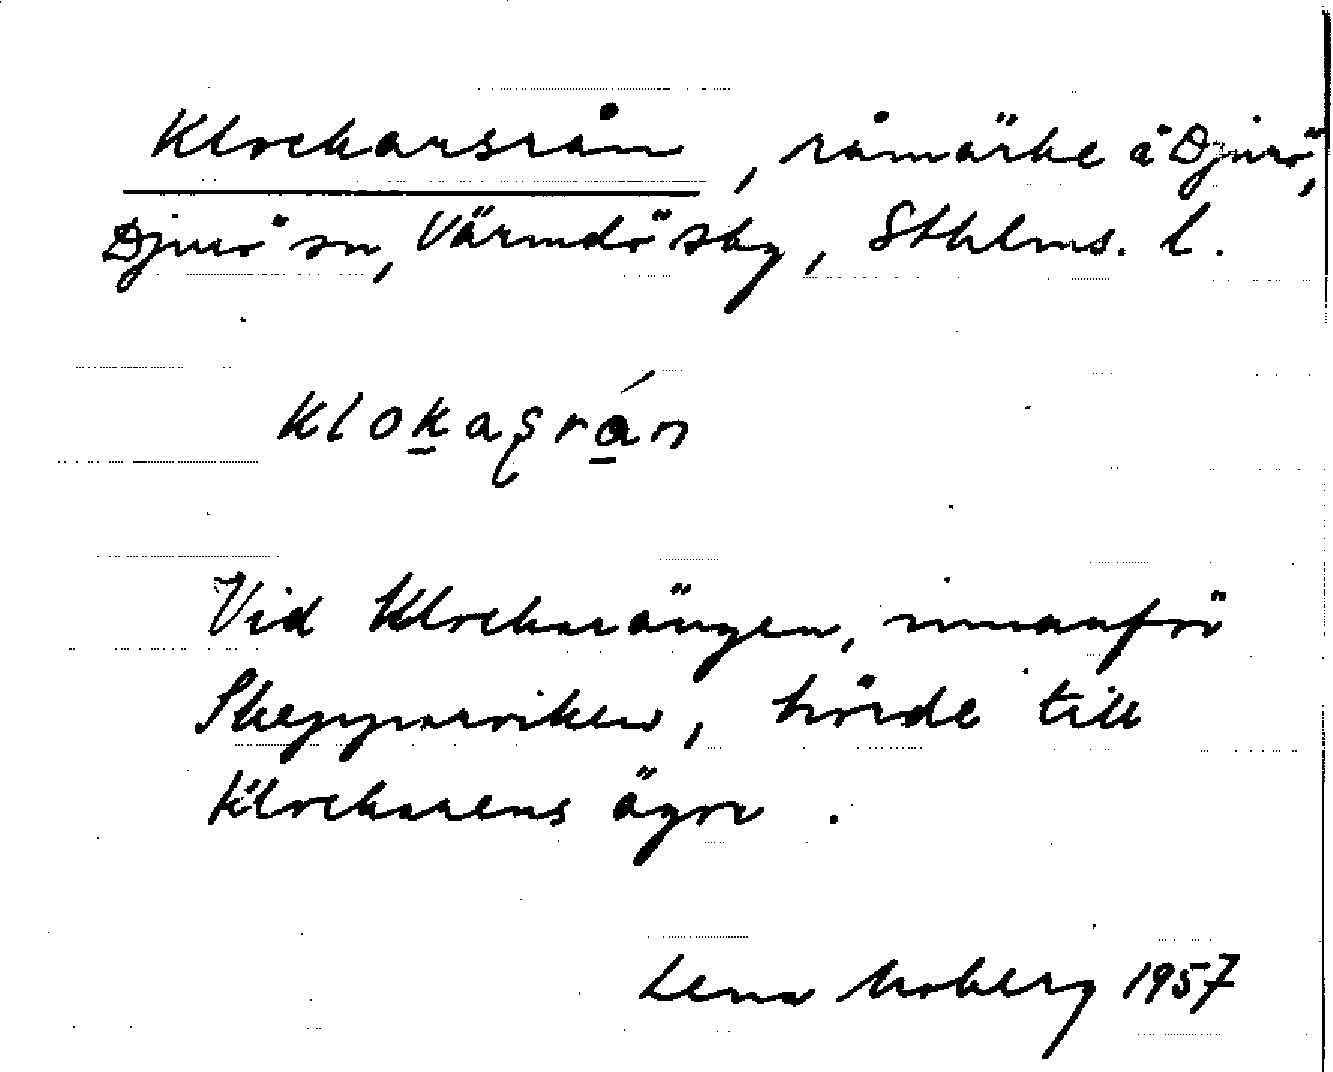 Klockarsrån, råmärke å Djurö,
Djurö sn, Värmdö skg, Sthlms. l.
klokaʂrán
Vid Klockarängen, innanför
Skepparviken, hörde till
Klockarens ägor.
Lena Moberg 1957